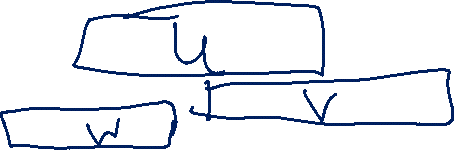 U
V
W